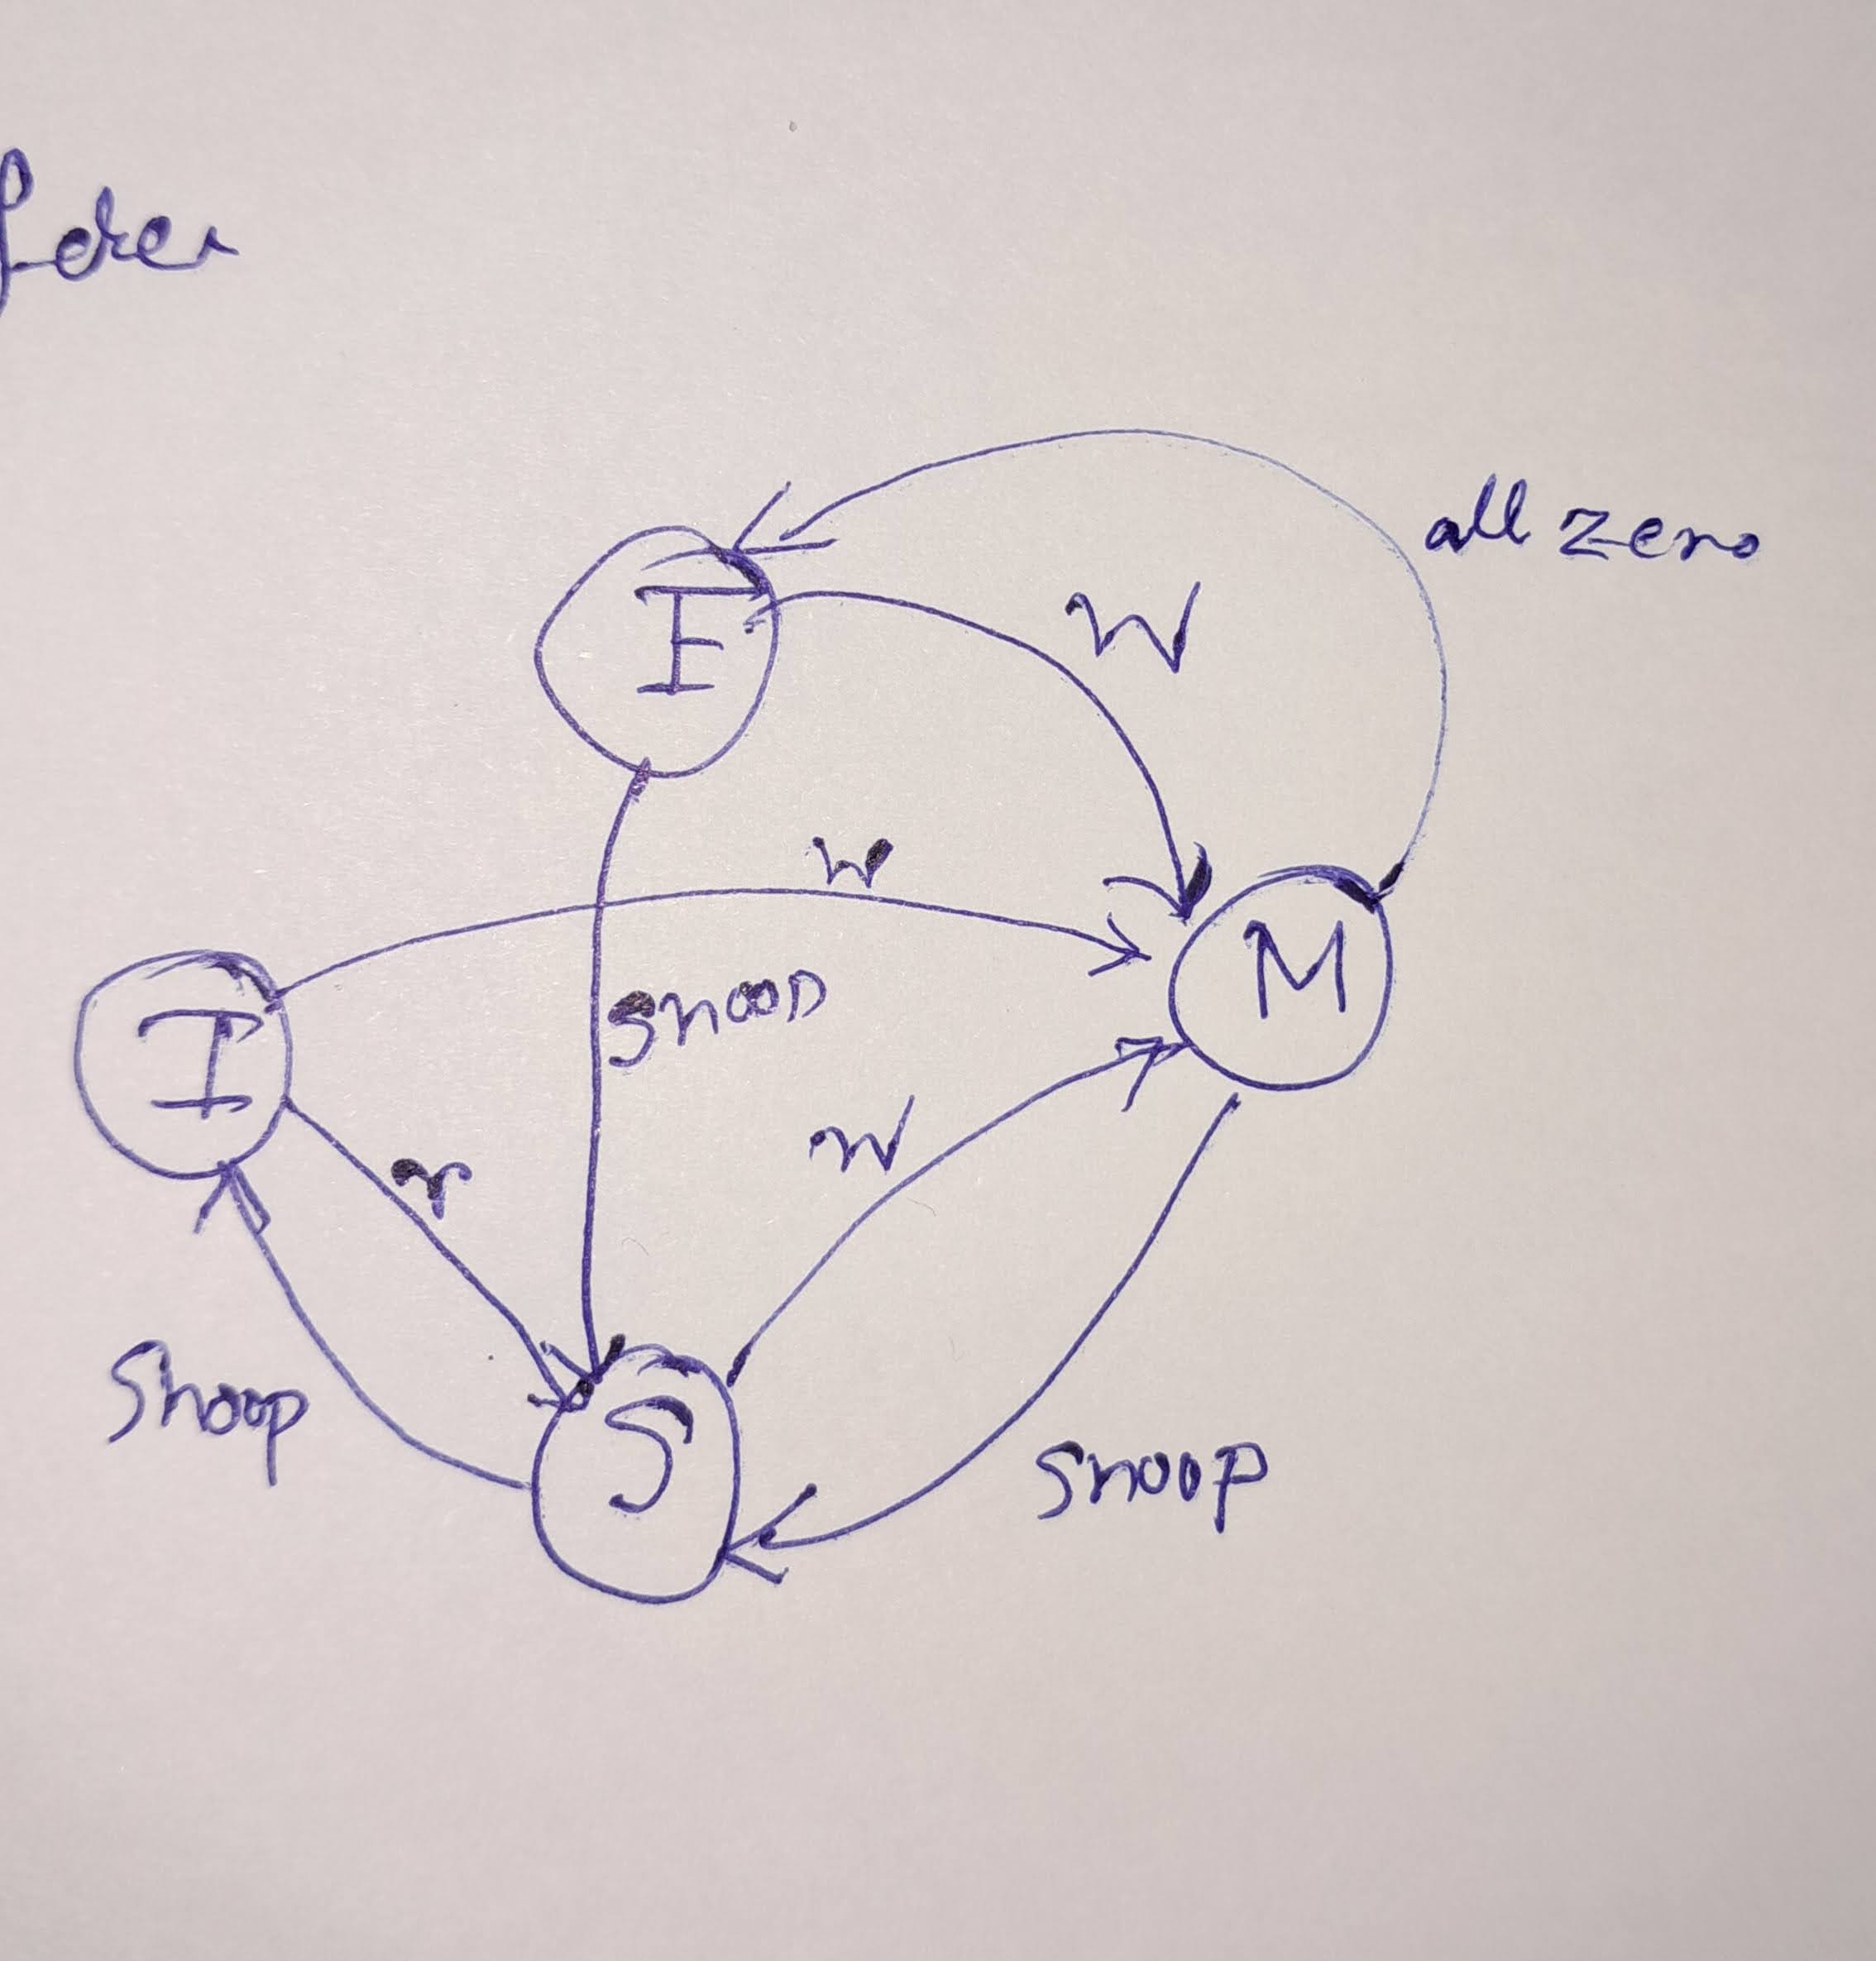 all zero
E
W
w
M
snoop
I
r
W
Snoop
S
snoop